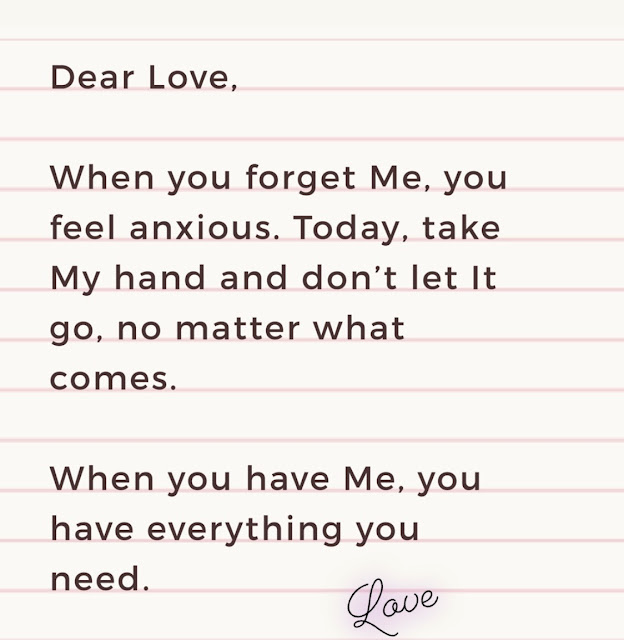 Dear Love,
When you forget Me, you
feel anxious. Today, take
My hand and don’t let It
go, no matter what
comes.
When you have Me, you
have everything you
need.
Love